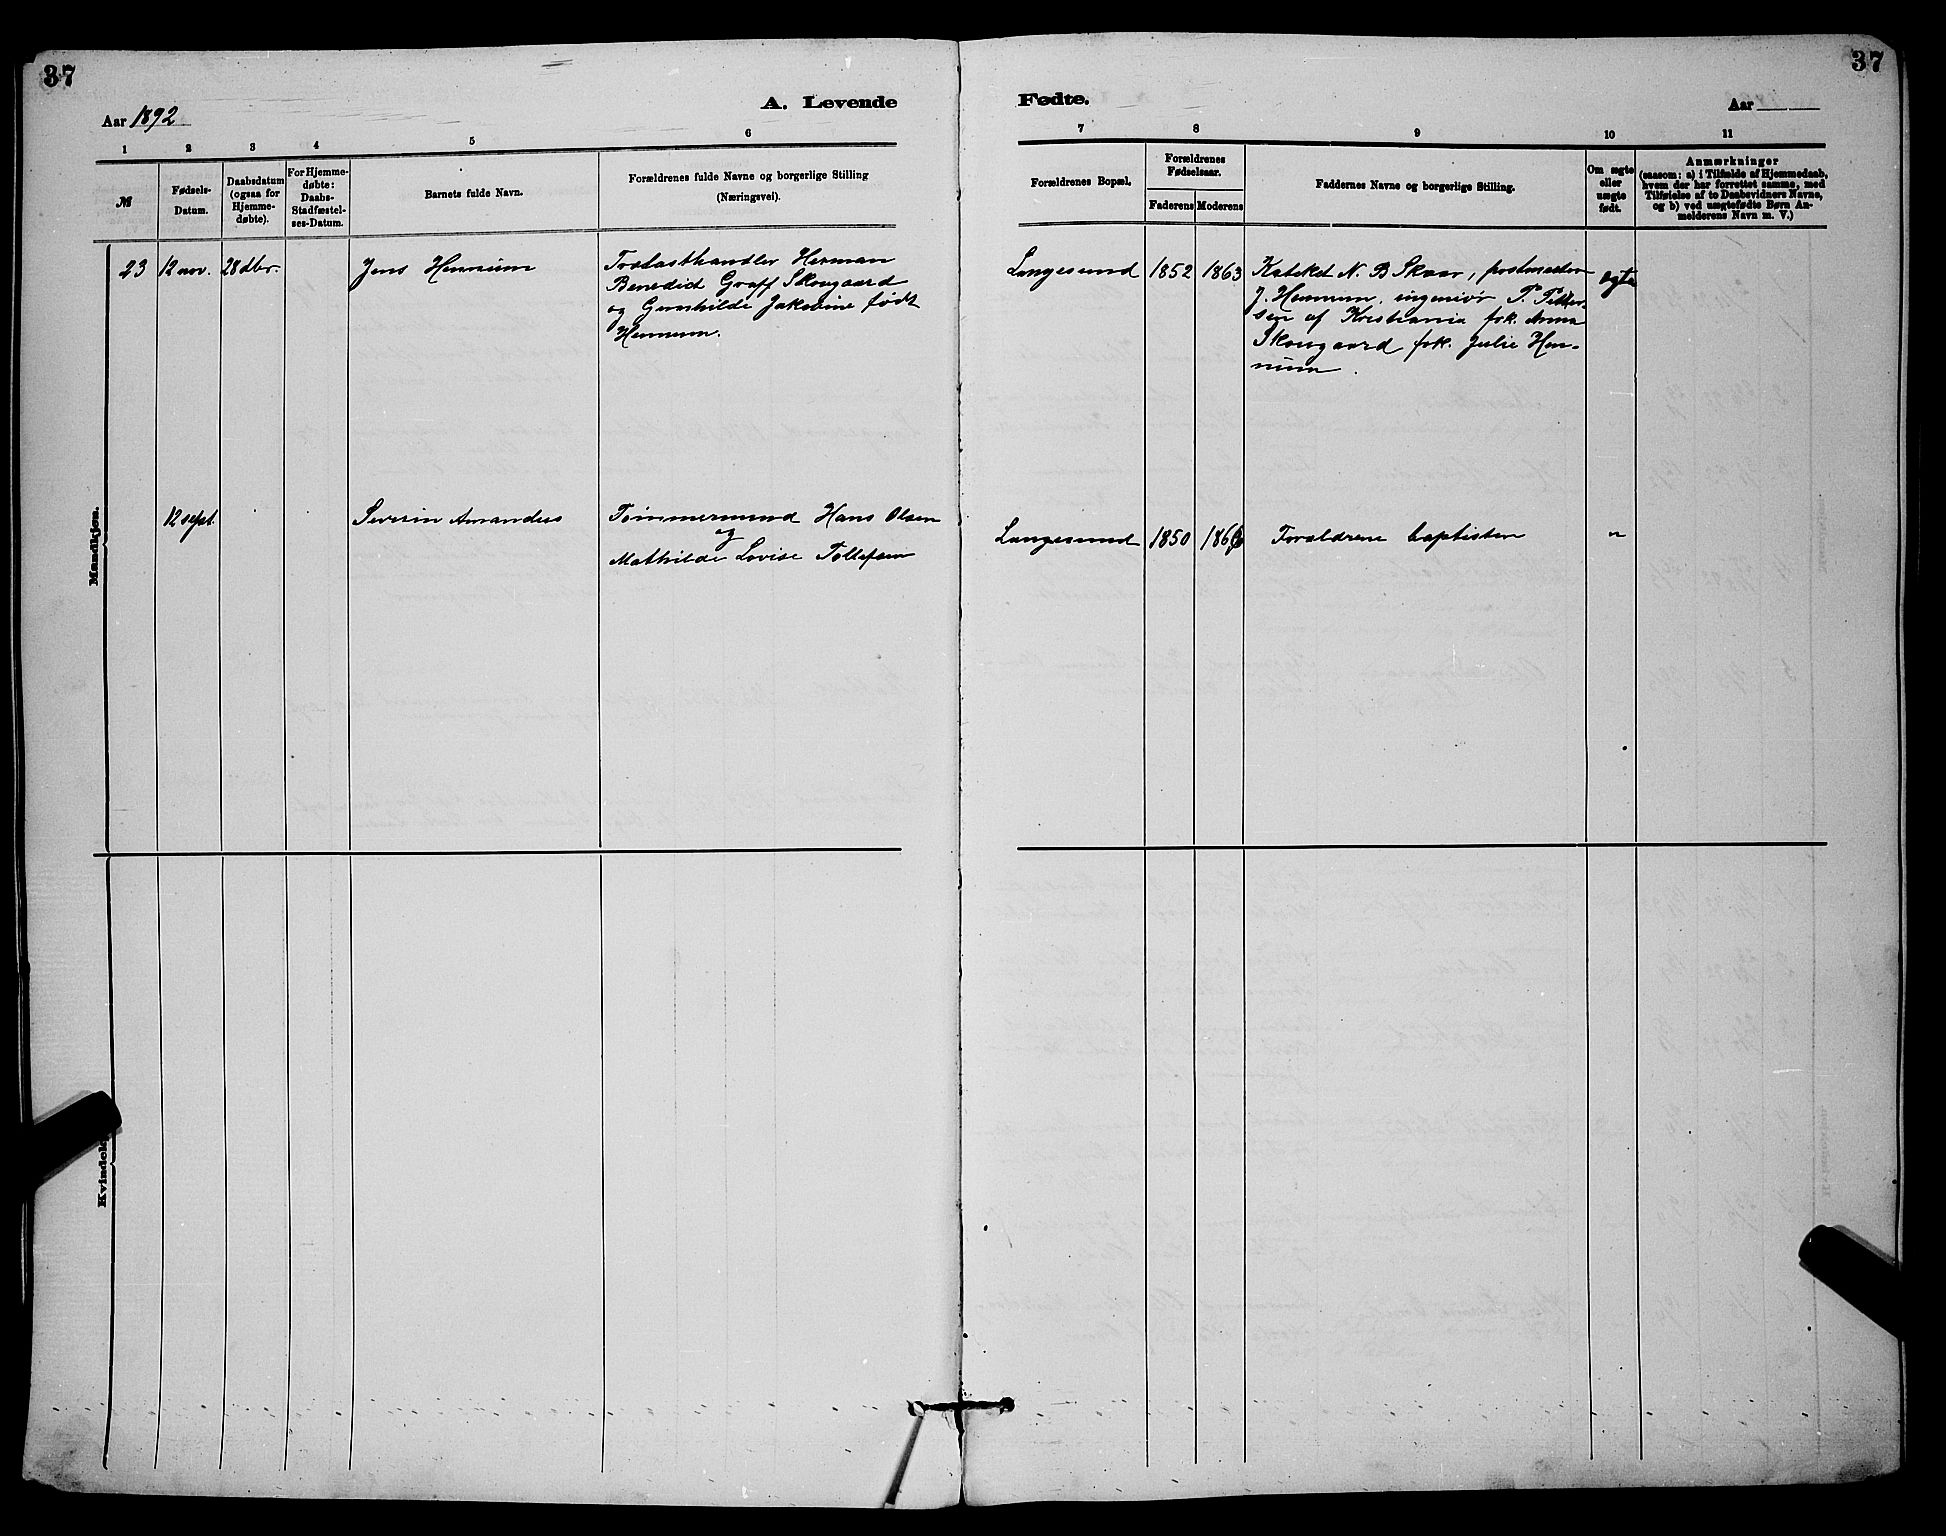 37
37
A. Levende
Fødte.
Aar 1892
Aar
1
2
3
4
5
6
7
8
9
10
11
M
Fødsels-
Datum.
Daabsdatum
(ogsaa for
Hjemme-
døbte).
For Hjemme-
døbte:
Daabs-
Stadfæstel-
ses-Datum.
Barnets fulde Navn.
Forældrenes fulde Navne og borgerlige Stilling
(Næringsvei).
Forældrenes Bopæl.
Forældrenes
Fødselsaar.
Faderens
Moderens
Faddernes Navne og borgerlige Stilling.
Om ægte
eller
uægte
født.
Anmærkninger
(saasom: a) i Tilfælde af Hjemmedaab,
hvem der har forrettet samme, med
Tilføielse af to Daabsvidners Navne,
og b) ved uægtefødte Børn An-
melderens Navn m. V.)
Mandkjøn.
23
12 nov.
28 dbr.
Jens Hennum
Trælasthandler Herman
Benedict Graff Skougaard
og Gunhilde Jakobine født
Hennum.
Langesund
1852
1863
Kateket N. B Skaar, postmester
J. Hennum, ingeniør P. Petter-
sen af Kristiania frk. Anna
Skougaard frk. Julie Hen-
num.
ægte
12 sept.
Severin Amandus
Tømmermand Hans Olsen
og
Mathilde Lovise Tollefsen
Langesund
1850
1866
Forældrene baptister
"
Kvindek